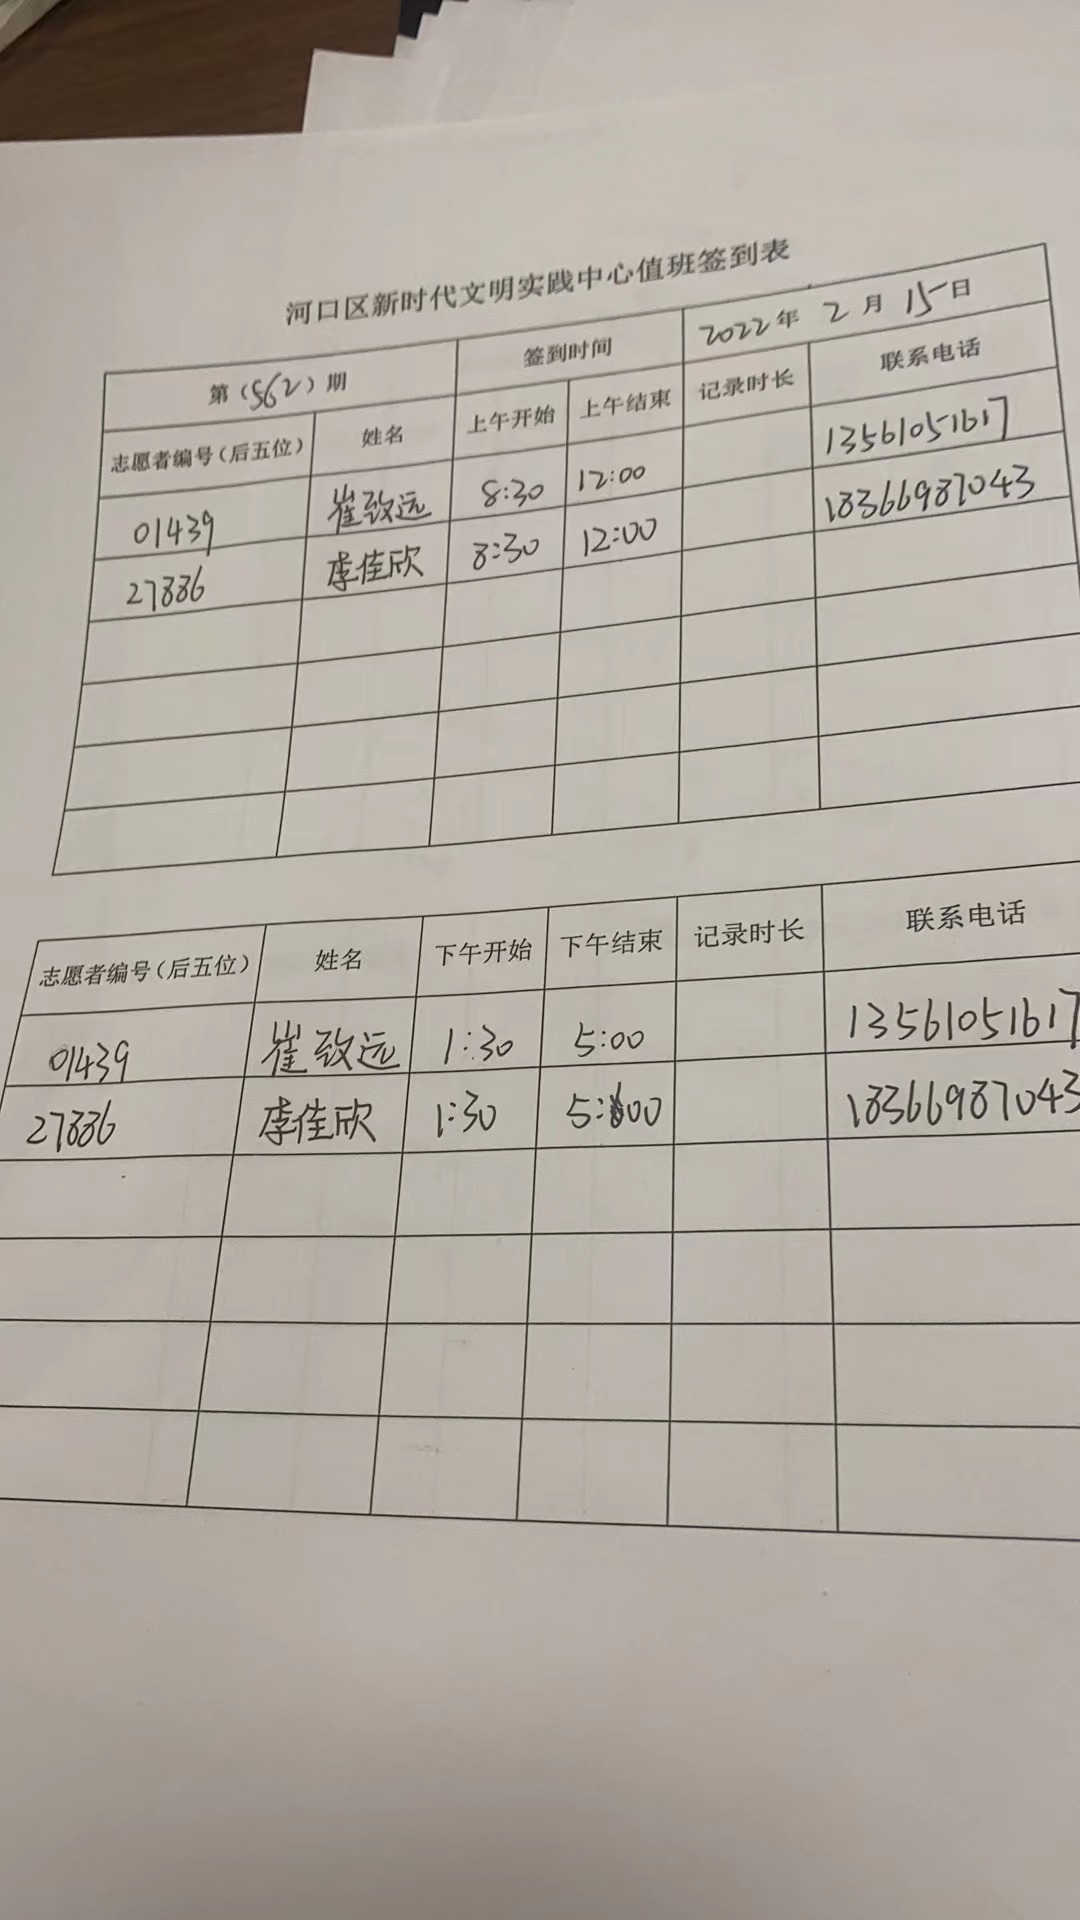 河口区新时代文明实践中心值班签到表
第（562）期 签到时间 2022年 2月 15日
志愿者编号（后五位） 姓名 上午开始 上午结束 记录时长 联系电话
01439 崔致远 8:30 12:00 13561051617
27886 李佳欣 8:30 12:00 18366987043
志愿者编号（后五位） 姓名 下午开始 下午结束 记录时长 联系电话
01439 崔致远 1:30 5:00 13561051617
27886 李佳欣 1:30 5:00 18366987043